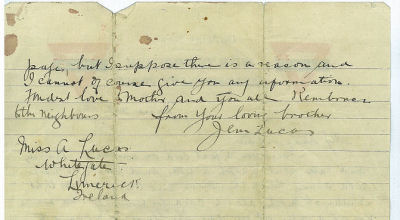 page, but I suppose there is a reason and
I cannot of course give you any information.
Fondest love Mother and you all Remembrance
to the Neighbours from your loving brother
Jem Lucas
Miss A Lucas
Whitegate
Limerick
Ireland